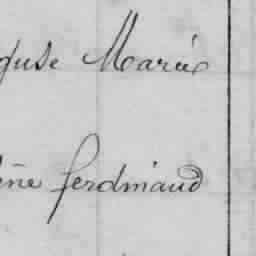 guse Marie
ène ferdinand